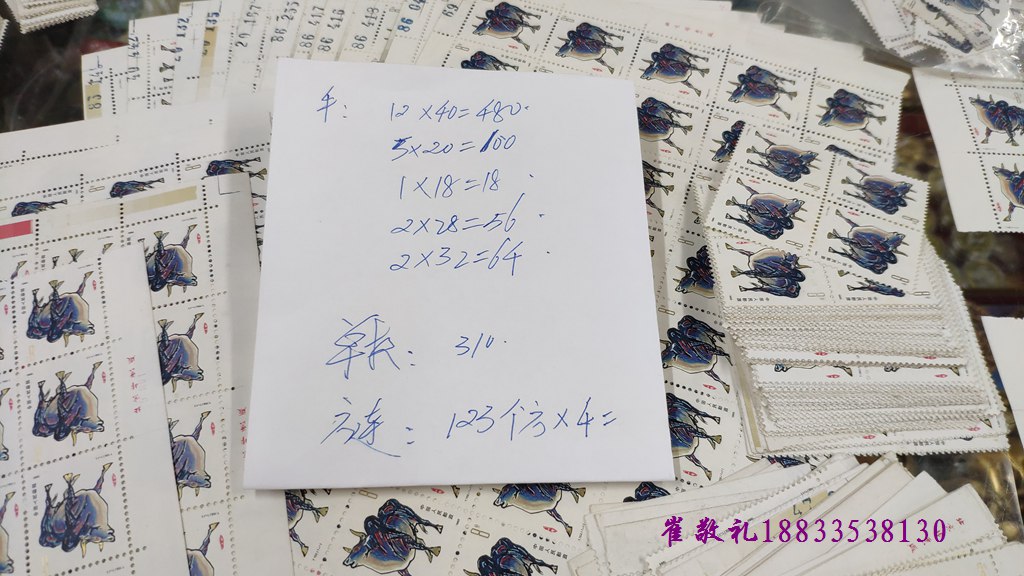 牛: 12×40=480.
5×20=100
1×18=18.
2×28=56.
2×32=64.
单枚: 310.
方连: 123个方×4=
崔敬礼18833538130